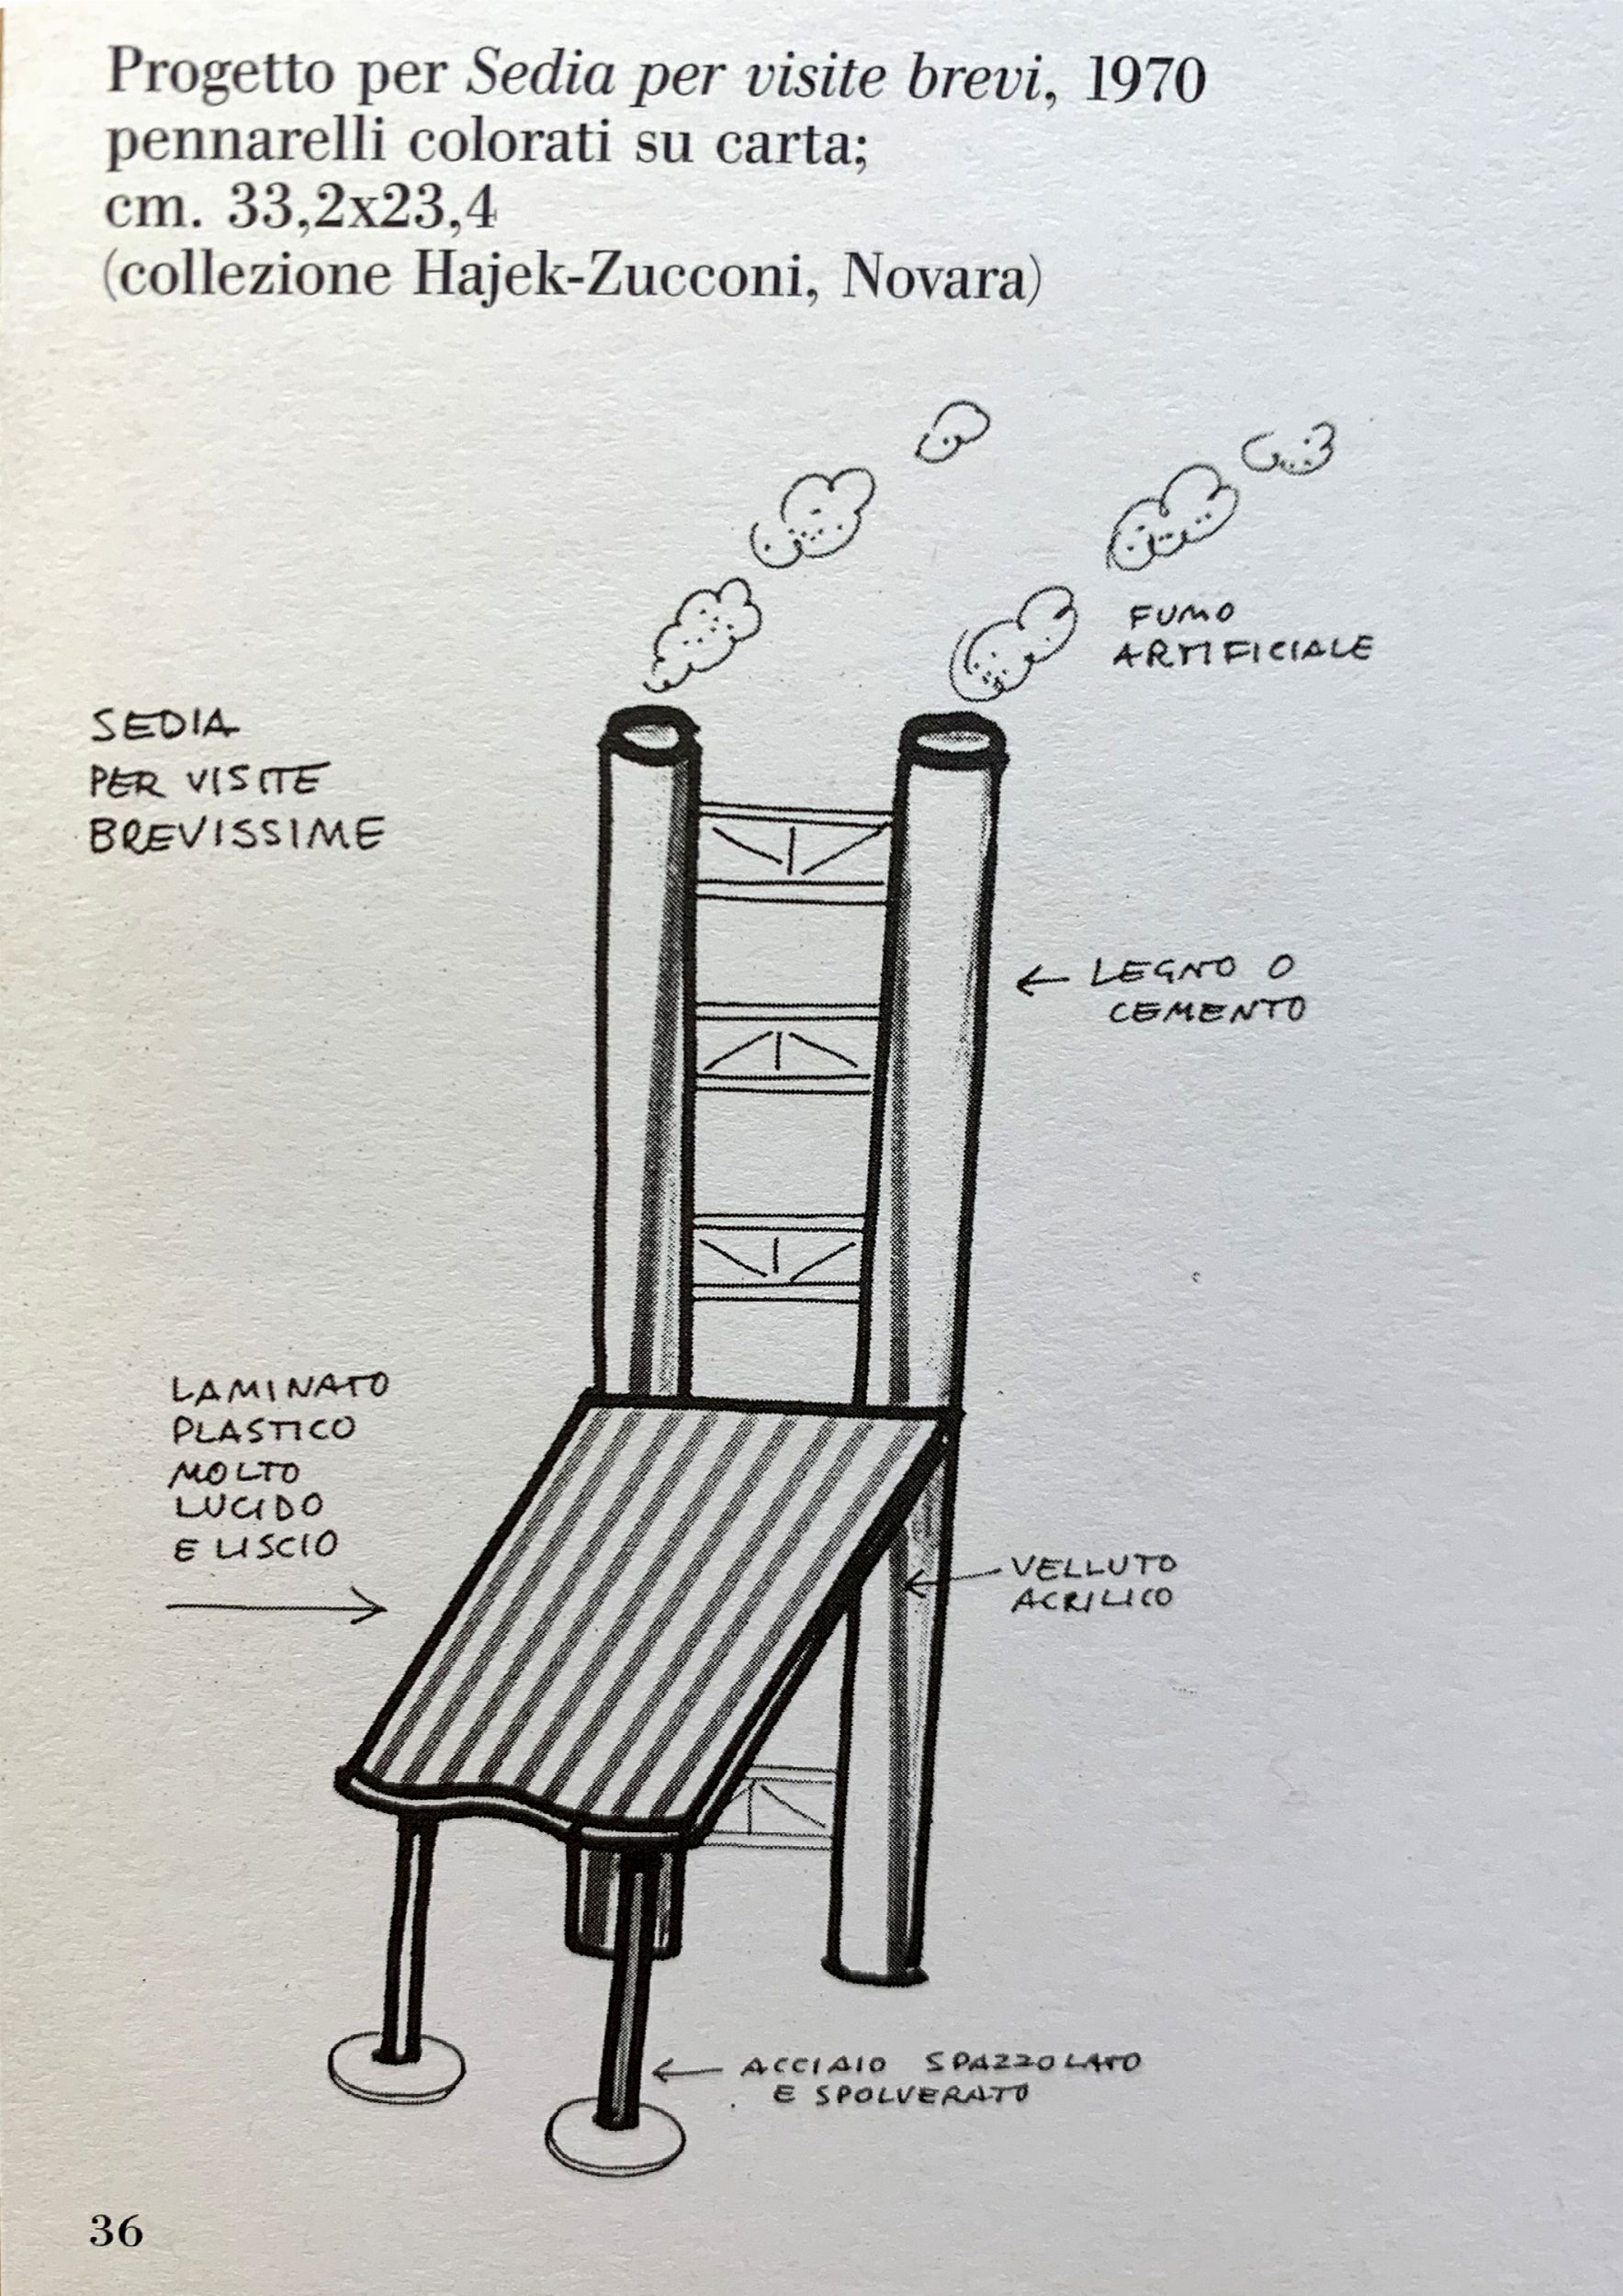 Progetto per Sedia per visite brevi, 1970
pennarelli colorati su carta;
cm. 33,2x23,4
(collezione Hajek-Zucconi, Novara)
FUMO
ARTIFICIALE
SEDIA
PER VISITE
BREVISSIME
LEGNO O
CEMENTO
LAMINATO
PLASTICO
MOLTO
LUCIDO
E LISCIO
VELLUTO
ACRILICO
ACCIAIO SPAZZOLATO
E SPOLVERATO
36